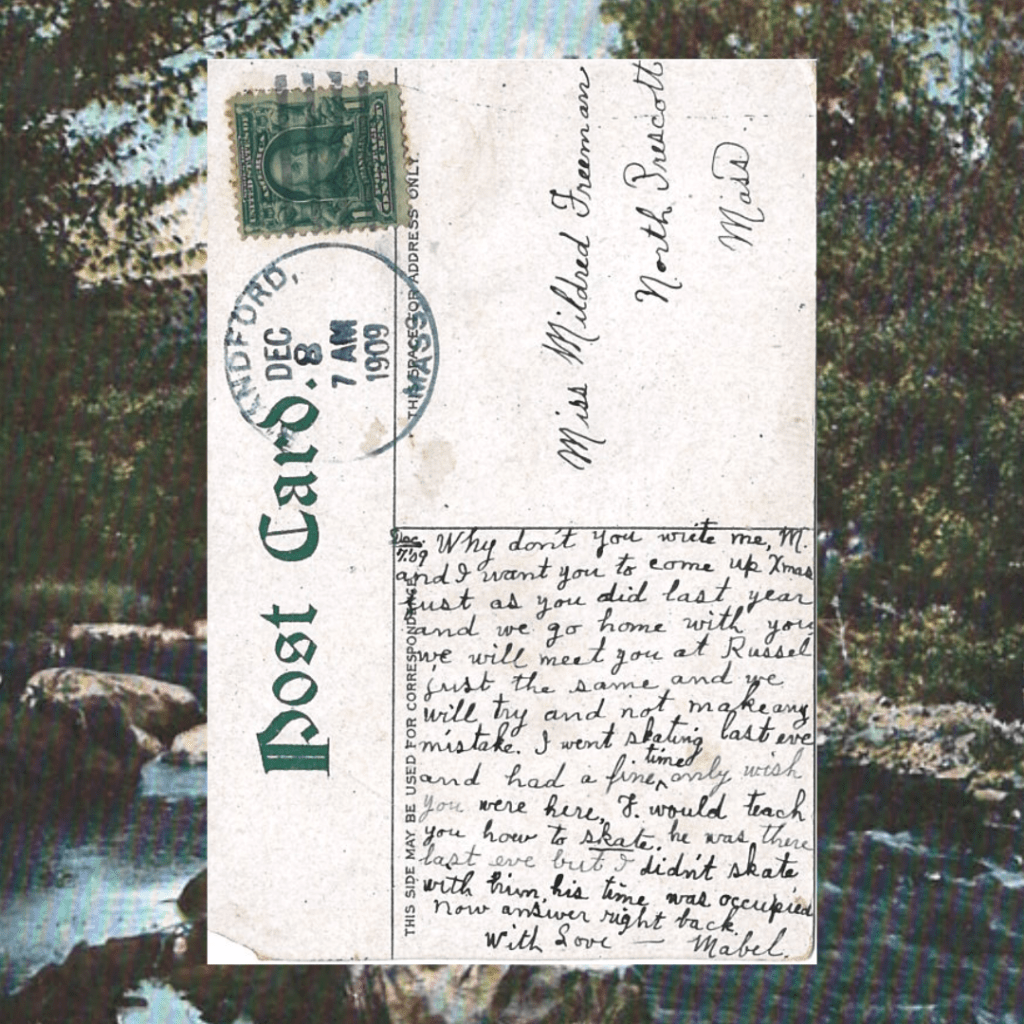 Post Card.
ANDFORD,
DEC
8
7 AM
1909
MASS.
THIS SPACE FOR ADDRESS ONLY.
Miss Mildred Freeman
North Prescott
Mass.
THIS SIDE MAY BE USED FOR CORRESPONDANCE
Dec.
7.'09
Why don't you write me, M.
and I want you to come up Xmas
just as you did last year
and we go home with you
we will meet you at Russel
just the same and we
will try and not make any
mistake. I went skating last eve
and had a fine time only wish
you were here, F. would teach
you how to skate. he was there
last eve but I didn't skate
with him, his time was occupied
now answer right back.
With Love — Mabel.